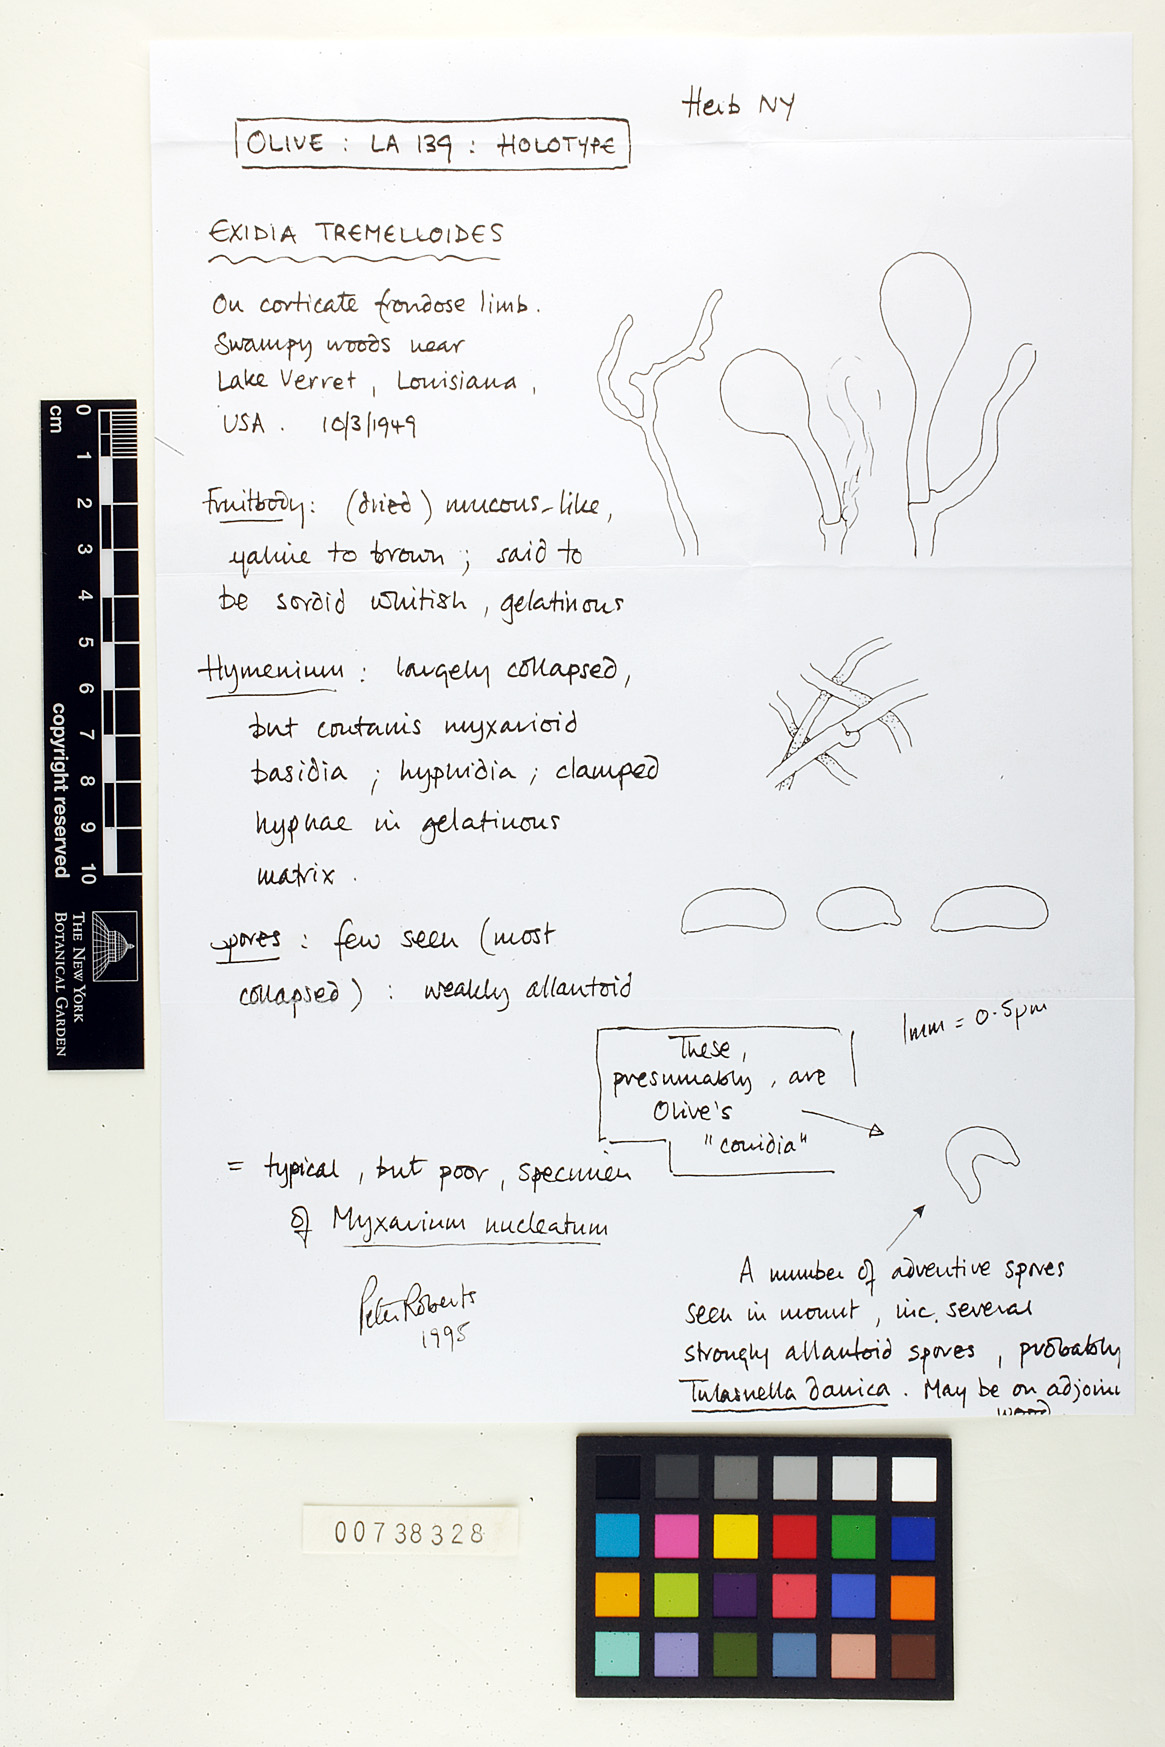 Herb NY
OLIVE : LA 139 : HOLOTYPE
EXIDIA TREMELLOIDES
On corticate frondose limb.
Swampy woods near
Lake Verret, Louisiana,
USA. 10/3/1949
Fruitbody: (dried) mucous-like,
yaline to brown; said to
be sordid whitish, gelatinous
Hymenium: largely collapsed,
but contains myxarioid
basidia; hyphidia; clamped
hyphae in gelatinous
matrix.
spores: few seen (most
collapsed): weakly allantoid
1mm = 0.5µm
These,
presumably, are
Olive's
"conidia"
= typical, but poor, specimen
of Myxarium nucleatum
Peter Roberts
1995
A number of adventive spores
seen in mount, inc. several
strongly allantoid spores, probably
Tulasnella danica. May be on adjoini
wood.
cm
0
1
2
3
4
5
6
7
8
9
10
copyright reserved
THE NEW YORK
BOTANICAL GARDEN
00738328